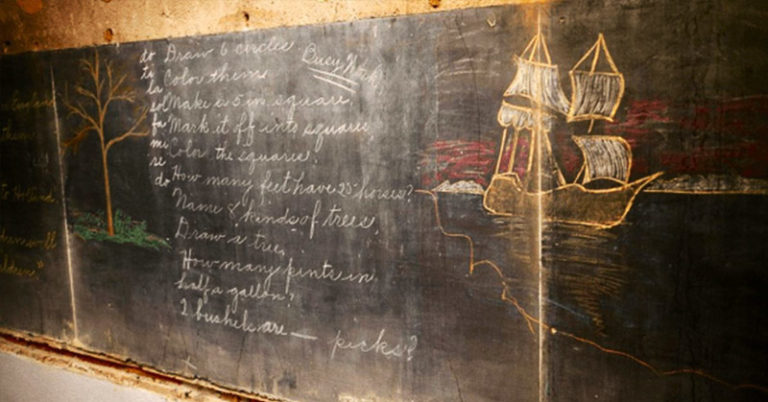 do Draw 6 circles. Lucy
ti Color them.
la
sol Make a 5 in. square.
fa Mark it off into squares
mi Color the squares.
re
do How many feet have 25 horses?
Name 8 kinds of trees.
Draw a tree.
How many pints in
half a gallon?
2 bushels are — pecks?